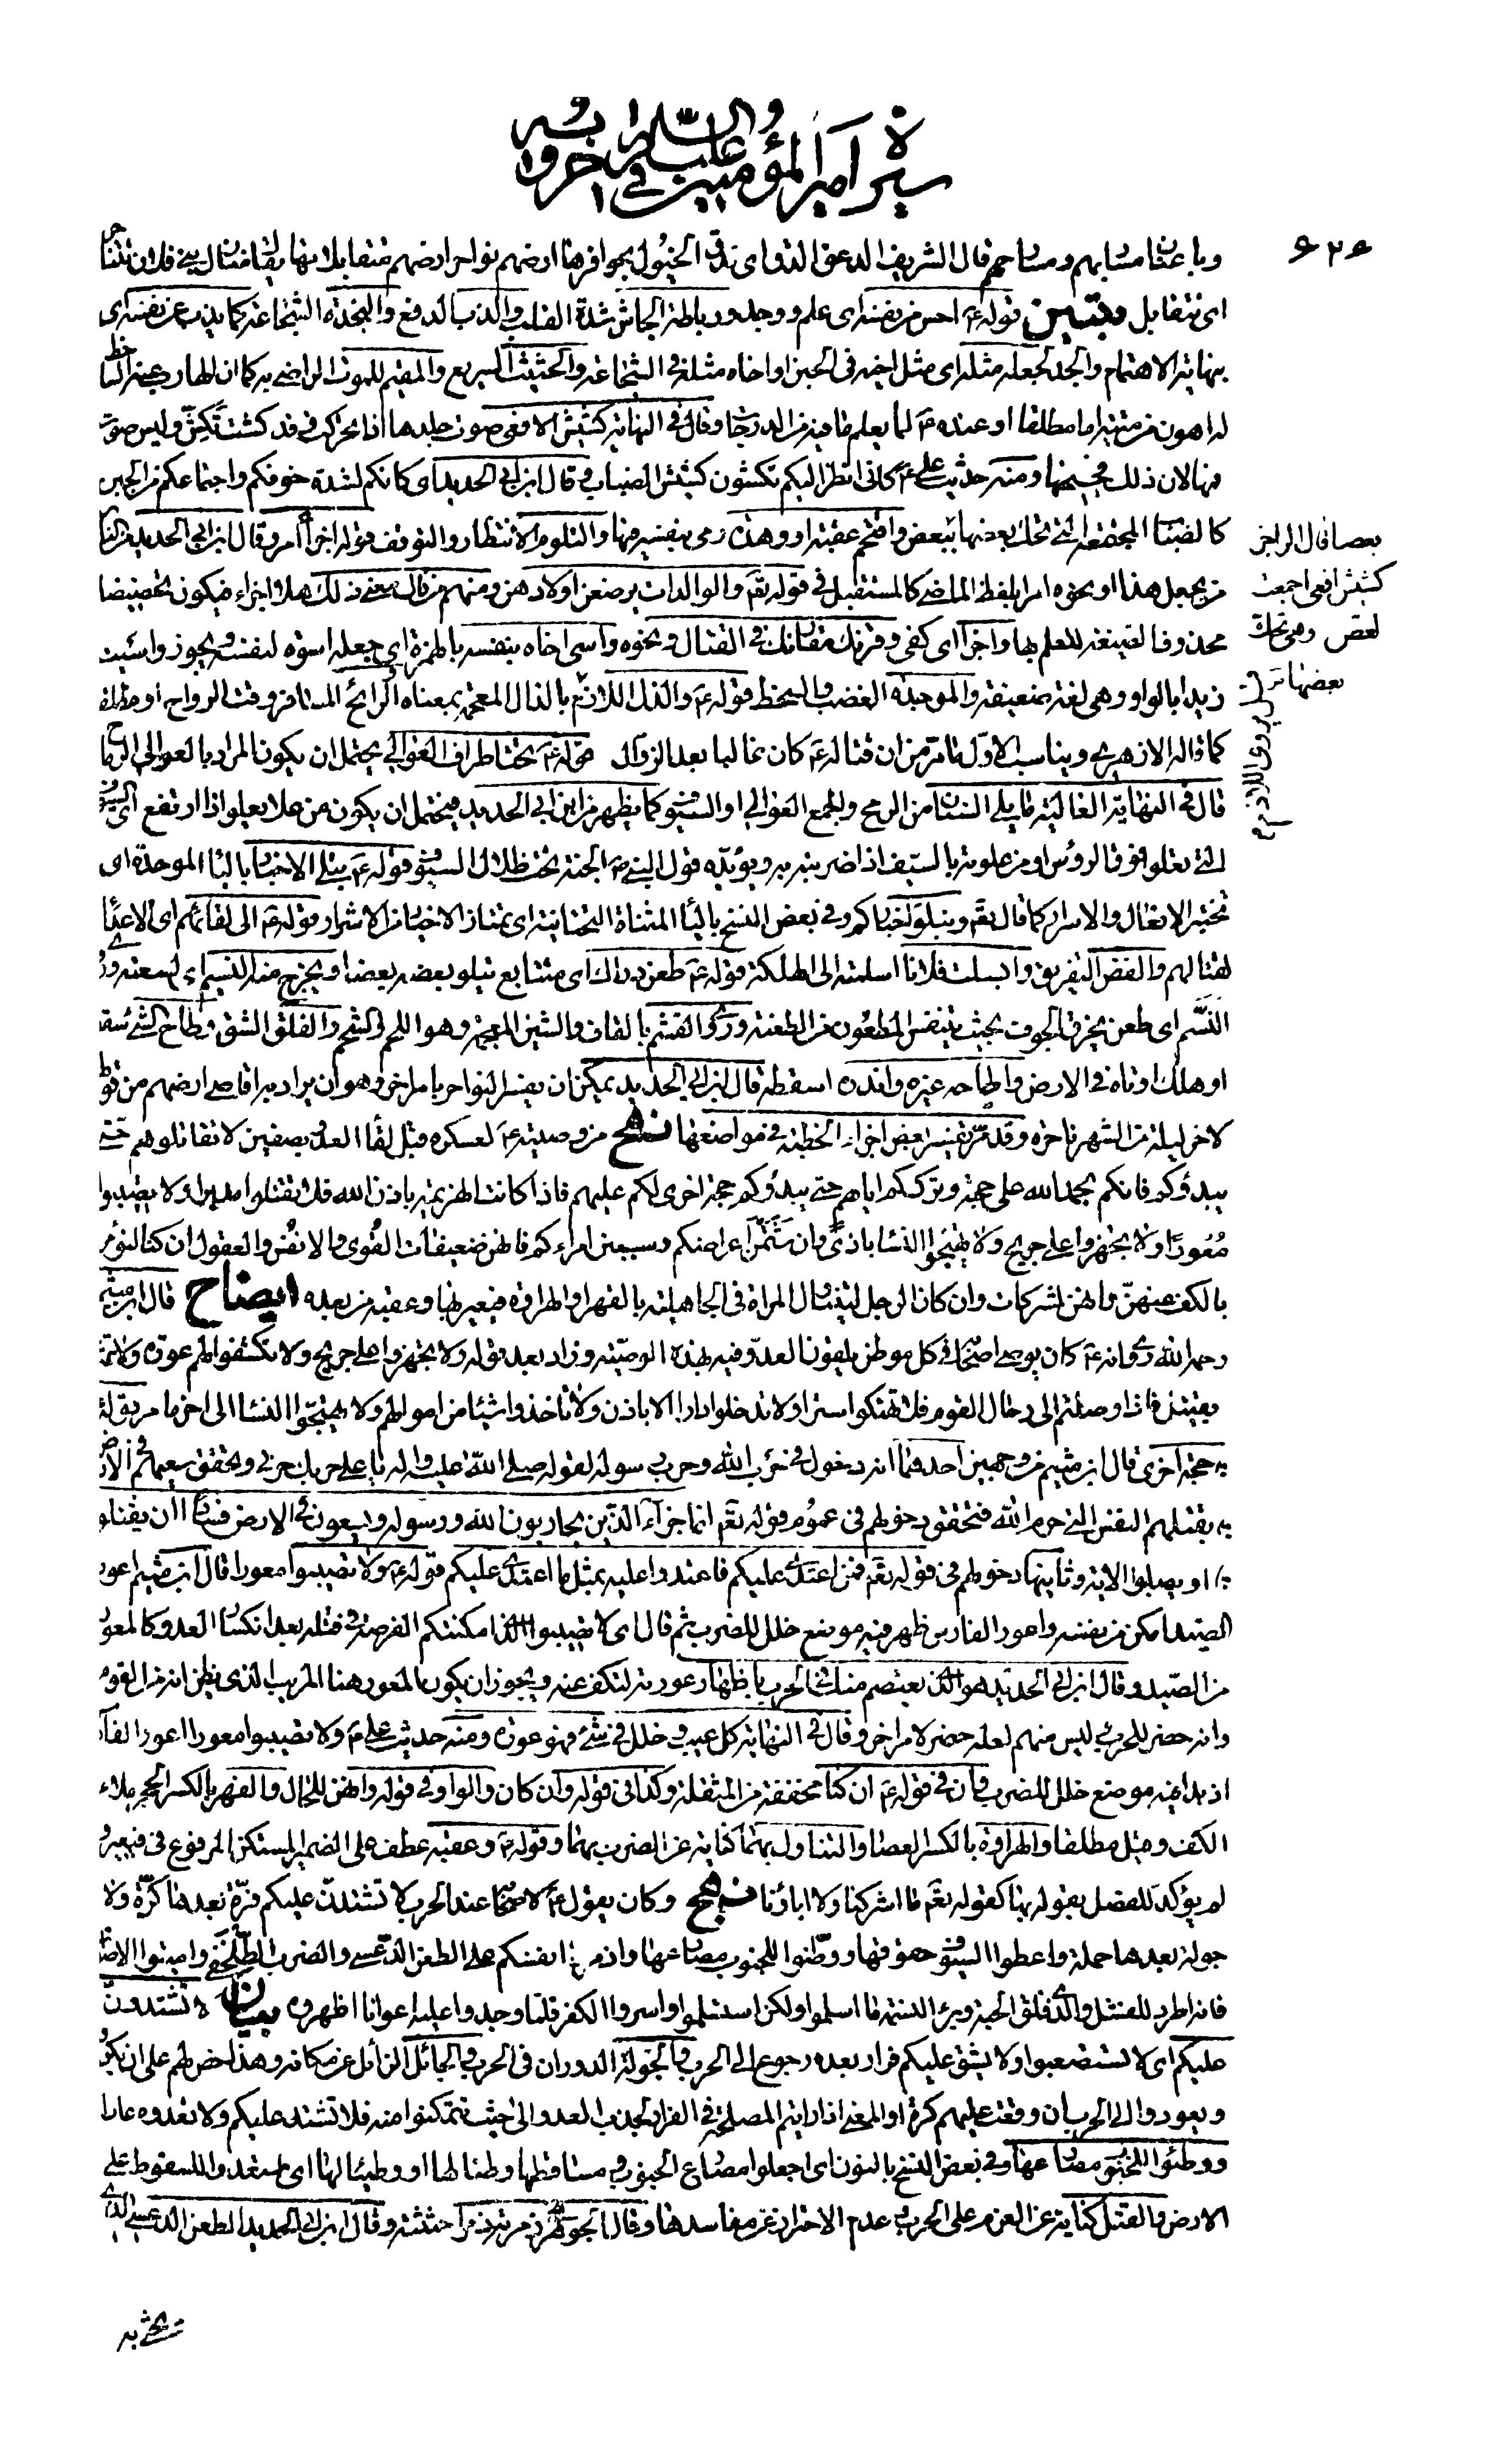 سيرة امير المؤمنين عليه السلام في حروبه
۶۲۶
وباعنان مساربهم ومسارحهم قال الشريف الدعق الدق اى تدق الخيول بحوافرها ارضهم نواحر ارضهم متقابلاتها يقال منازل بنى فلان تتناحر
اى تتقابل تبيين قوله ع احس من نفسه اى علم ووجد ورباطة الجاش شدة القلب والذب الدفع والنجدة الشجاعة كما يذب عن نفسه اى
بنهاية الاهتمام والجد لجعله مثله اى مثل اخيه فى الجبن او اخاه مثله فى الشجاعة والحثيث السريع والمقيم للموت الراضى به كما ان الهارب عنه الساخط
له اهون من ميتة اما مطلقا او عنده ع لما يعلم ما فيه من الدرجات وقال فى النهاية كشيش الافعى صوت جلدها اذا تحركت وقد كشت تكش وليس صوت
فمها لان ذلك فحيحها ومنه حديث على ع كانى انظر اليكم تكشون كشيش الضباب وقال ابن ابى الحديد اى كانكم لشدة خوفكم واجتماعكم من الجبن
كالضباب المجتمعة التى تحك بعضها ببعض واقتحم عقبة او وهدة رمى بنفسه فيها والتلوم الانتظار والتوقف قوله اجزأ امرؤ قال ابن ابى الحديد من الناس
من يجعل هذا او نحوه امرا بلفظ الماضى كالمستقبل فى قوله تعم والوالدات يرضعن اولادهن ومنهم من قال معنى ذلك هلا اجزاء فيكون تحضيضا
محذوف الصيغة للعلم بها واجزأ اى كفى وقرنك مقارنك فى القتال ونحوه وآسى اخاه بنفسه بالهمزة اى جعله اسوة لنفسه ويجوز واسيت
زيدا بالواو وهى لغة ضعيفة والموجدة الغضب والسخط قوله ع والذل اللازم بالذال المعجمة بمعناه الرائح المسافر وقت الرواح او مطلقا
كما قاله الازهرى ويناسب الاول ما مر من ان قتاله ع كان غالبا بعد الزوال قوله ع تحت اطراف العوالى يحتمل ان يكون المراد بالعوالى الرماح
قال فى النهاية العالية ما يلى السنان من الرمح والجمع العوالى او السيوف كما يظهر من ابن ابى الحديد فيحتمل ان يكون من علا يعلو اذا ارتفع اى السيوف
التى تعلو فوق الرؤس او من علوته بالسيف اذا ضربته به ويؤيده قول النبى ص الجنة تحت ظلال السيوف قوله ع تبلى الاخبار بالباء الموحدة اى
تختبر الافعال والاسرار كما قال تعم ونبلو اخباركم وفى بعض النسخ بالياء المثناة التحتانية اى تمتاز الاخيار من الاشرار قوله ع الى لقائهم اى الاعداء
لقتالهم والفض التفريق وابسلت فلانا اسلمته الى الهلكة قوله ع طعن دراك اى متتابع يتلو بعضه بعضا ويخرج منه النسيم اى لسعته وروى
النسم اى طعن يخرق الجوف بحيث يتنفس المطعون من الطعنة وروى القشم بالقاف والشين المعجمة وهو اللحم والشحم والفلق الشق وطاح الشئ سقط
او هلك او تاه فى الارض واطاحه غيره واندره اسقطه قال ابن ابى الحديد يمكن ان يفسر النواحر بامر اخر وهو ان يراد به اقاصى ارضهم من قولهم
لاخر ليلة من الشهر ناحرة وقد مر تفسير بعض اجزاء الخطبة فى مواضعها نهج من وصيته ع لعسكره قبل لقاء العدو بصفين لا تقاتلوهم حتى
يبدؤكم فانكم بحمد الله على حجة وترككم اياهم حتى يبدؤكم حجة اخرى لكم عليهم فاذا كانت الهزيمة باذن الله فلا تقتلوا مدبرا ولا تصيبوا
معورا ولا تجهزوا على جريح ولا تهيجوا النساء باذى وان شتمن اعراضكم وسببن امراءكم فانهن ضعيفات القوى والانفس والعقول ان كنا لنؤمر
بالكف عنهن وانهن لمشركات وان كان الرجل ليتناول المراة فى الجاهلية بالفهر او الهراوة فيعير بها وعقبه من بعده ايضاح قال ابن ميثم
رحمه الله روى انه ع كان يوصى اصحابه فى كل موطن يلقون العدو فيه بهذه الوصية وزاد بعد قوله ولا تجهزوا على جريح ولا تكشفوا لهم عورة ولا تمثلوا
بقتيل فاذا وصلتم الى رحال القوم فلا تهتكوا سترا ولا تدخلوا دارا الا باذن ولا تاخذوا شيئا من اموالهم ولا تهيجوا النساء الى اخر ما مر قوله
ع حجة اخرى قال ابن ميثم من وجهين احدهما انه دخول فى حرب الله وحرب رسوله لقوله صلى الله عليه واله يا على حربك حربى وتحقق سعيهم فى الارض
بقتلهم النفس التى حرم الله فتحقق دخولهم فى عموم قوله تعم انما جزاء الذين يحاربون الله ورسوله ويسعون فى الارض فسادا ان يقتلوا
او يصلبوا الاية وثانيها دخولهم فى قوله تعم فمن اعتدى عليكم فاعتدوا عليه بمثل ما اعتدى عليكم قوله ع ولا تصيبوا معورا قال ابن ميثم اعور
الصيد امكن من نفسه واعور الفارس ظهر فيه موضع خلل للضرب ثم قال اى لا تصيبوا الذى امكنتكم الفرصة فى قتله بعد انكسار العدو كالمعور
من الصيد وقال ابن ابى الحديد هو الذى يعتصم منك فى الحرب باظهار عورته لتكف عنه ويجوز ان يكون المعور هنا المريب الذى يظن انه من القوم
وانه حضر للحرب وليس منهم لعله حضر لامر اخر وقال فى النهاية كل عيب وخلل فى شئ فهو عورة ومنه حديث على ع ولا تصيبوا معورا اعور الفارس
اذ بدا فيه موضع خلل للضرب وان فى قوله ع ان كنا مخففة من المثقلة وكذا فى قوله وان كان والواو فى قوله وانهن للحال والفهر بالكسر الحجر ملاء
الكف وقيل مطلقا والهراوة بالكسر العصا والتناول بهما كناية عن الضرب بهما وقوله ع وعقبه عطف على الضمير المستكن المرفوع فى فيعير و
لم يؤكد للفصل بقوله بها كقوله تعم ما اشركنا ولا اباؤنا نهج وكان يقول ع لاصحابه عند الحرب لا تشتدن عليكم فرة بعدها كرة ولا
جولة بعدها حملة واعطوا السيوف حقوقها ووطنوا للجنوب مصارعها واذمروا انفسكم على الطعن الدعسى والضرب الطلحفى واميتوا الاصوات
فانه اطرد للفشل والذى فلق الحبة وبرء النسمة ما اسلموا ولكن استسلموا واسروا الكفر فلما وجدوا عليه اعوانا اظهروه بيان لا تشتدن
عليكم اى لا تستصعبوا ولا يشق عليكم فرار بعده رجوع الى الحرب والجولة الدوران فى الحرب والجائل الزائل عن مكانه وهذا حض لهم على ان يكروا
ويعودوا الى الحرب ان وقعت عليهم كرة او المعنى اذا رايتم المصلحة فى الفرار لجذب العدو الى حيث تتمكنوا منه فلا تشتد عليكم ولا تعدوه عارا
ووطئوا للجنوب مصارعها وفى بعض النسخ بالنون اى اجعلوا مصارع الجنوب ومساقطها وطنا لها او وطيئا لها اى استعدوا للسقوط على
الارض والقتل كناية عن العزم على الحرب وعدم الاحتراز عن مفاسدها وقال الجوهرى ذمرته ذمرا حثثته وقال ابن ابى الحديد الطعن الدعسى الذى
بعضا قال الراجز
كشيش افعى اجمعت
لعض وهى تحك
بعضها
يحشى به